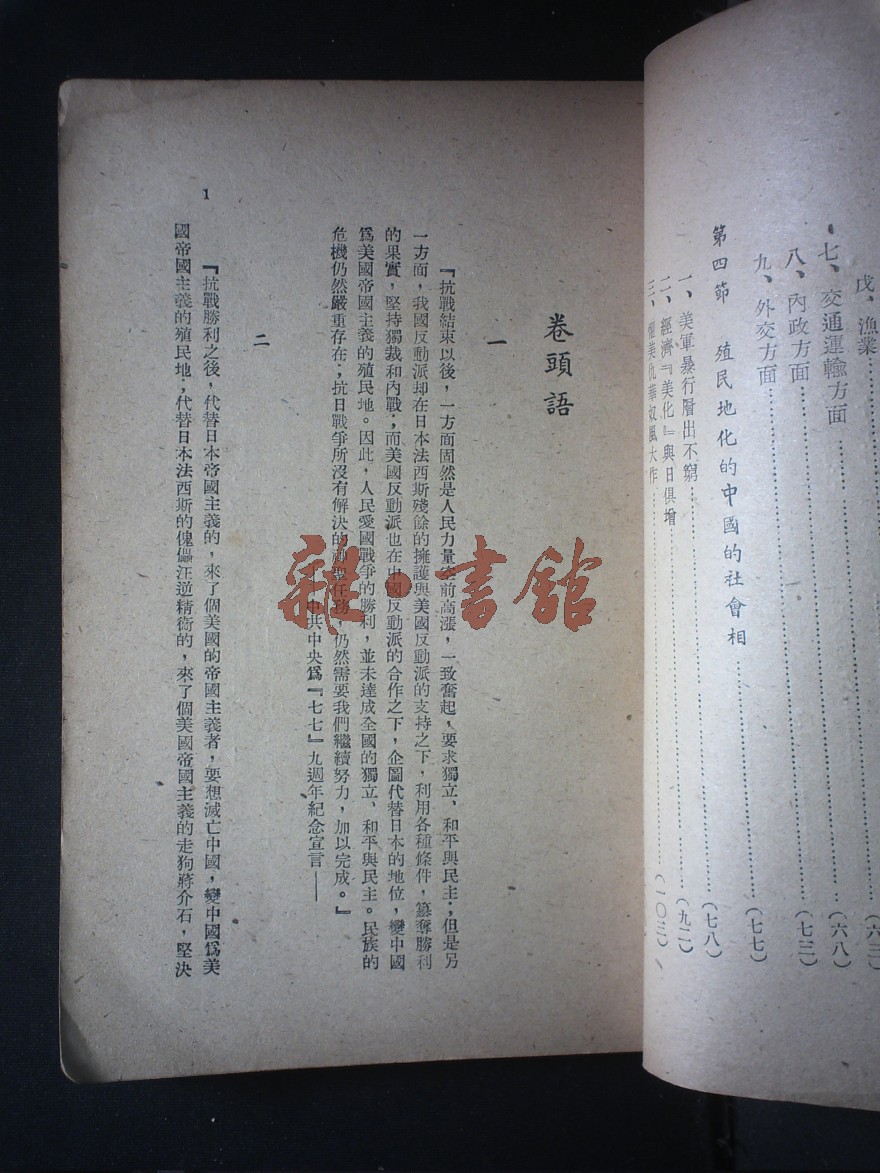 戊、漁業
七、交通運輸方面……(六八)
八、內政方面……(七三)
九、外交方面……(七七)
第四節 殖民地化的中國的社會相
一、美軍暴行層出不窮……(七八)
二、經濟『美化』與日俱增……(九二)
三、懼美仇華奴風大作……(一〇三)
卷頭語
一
『抗戰結束以後，一方面固然是人民力量空前高漲，一致奮起，要求獨立、和平與民主；但是另
一方面，我國反動派却在日本法西斯殘餘的擁護與美國反動派的支持之下，利用各種條件，篡奪勝利
的果實，堅持獨裁和內戰；而美國反動派也在中國反動派的合作之下，企圖代替日本的地位，變中國
爲美國帝國主義的殖民地。因此，人民愛國戰爭的勝利，並未達成全國的獨立、和平與民主。民族的
危機仍然嚴重存在；抗日戰爭所沒有解決的神聖任務，仍然需要我們繼續努力，加以完成。』
中共中央爲『七七』九週年紀念宣言——
二
『抗戰勝利之後，代替日本帝國主義的，來了個美國的帝國主義者，要想滅亡中國，變中國爲美
國帝國主義的殖民地；代替日本法西斯的傀儡汪逆精衛的，來了個美國帝國主義的走狗蔣介石，堅決
1
雜·書館